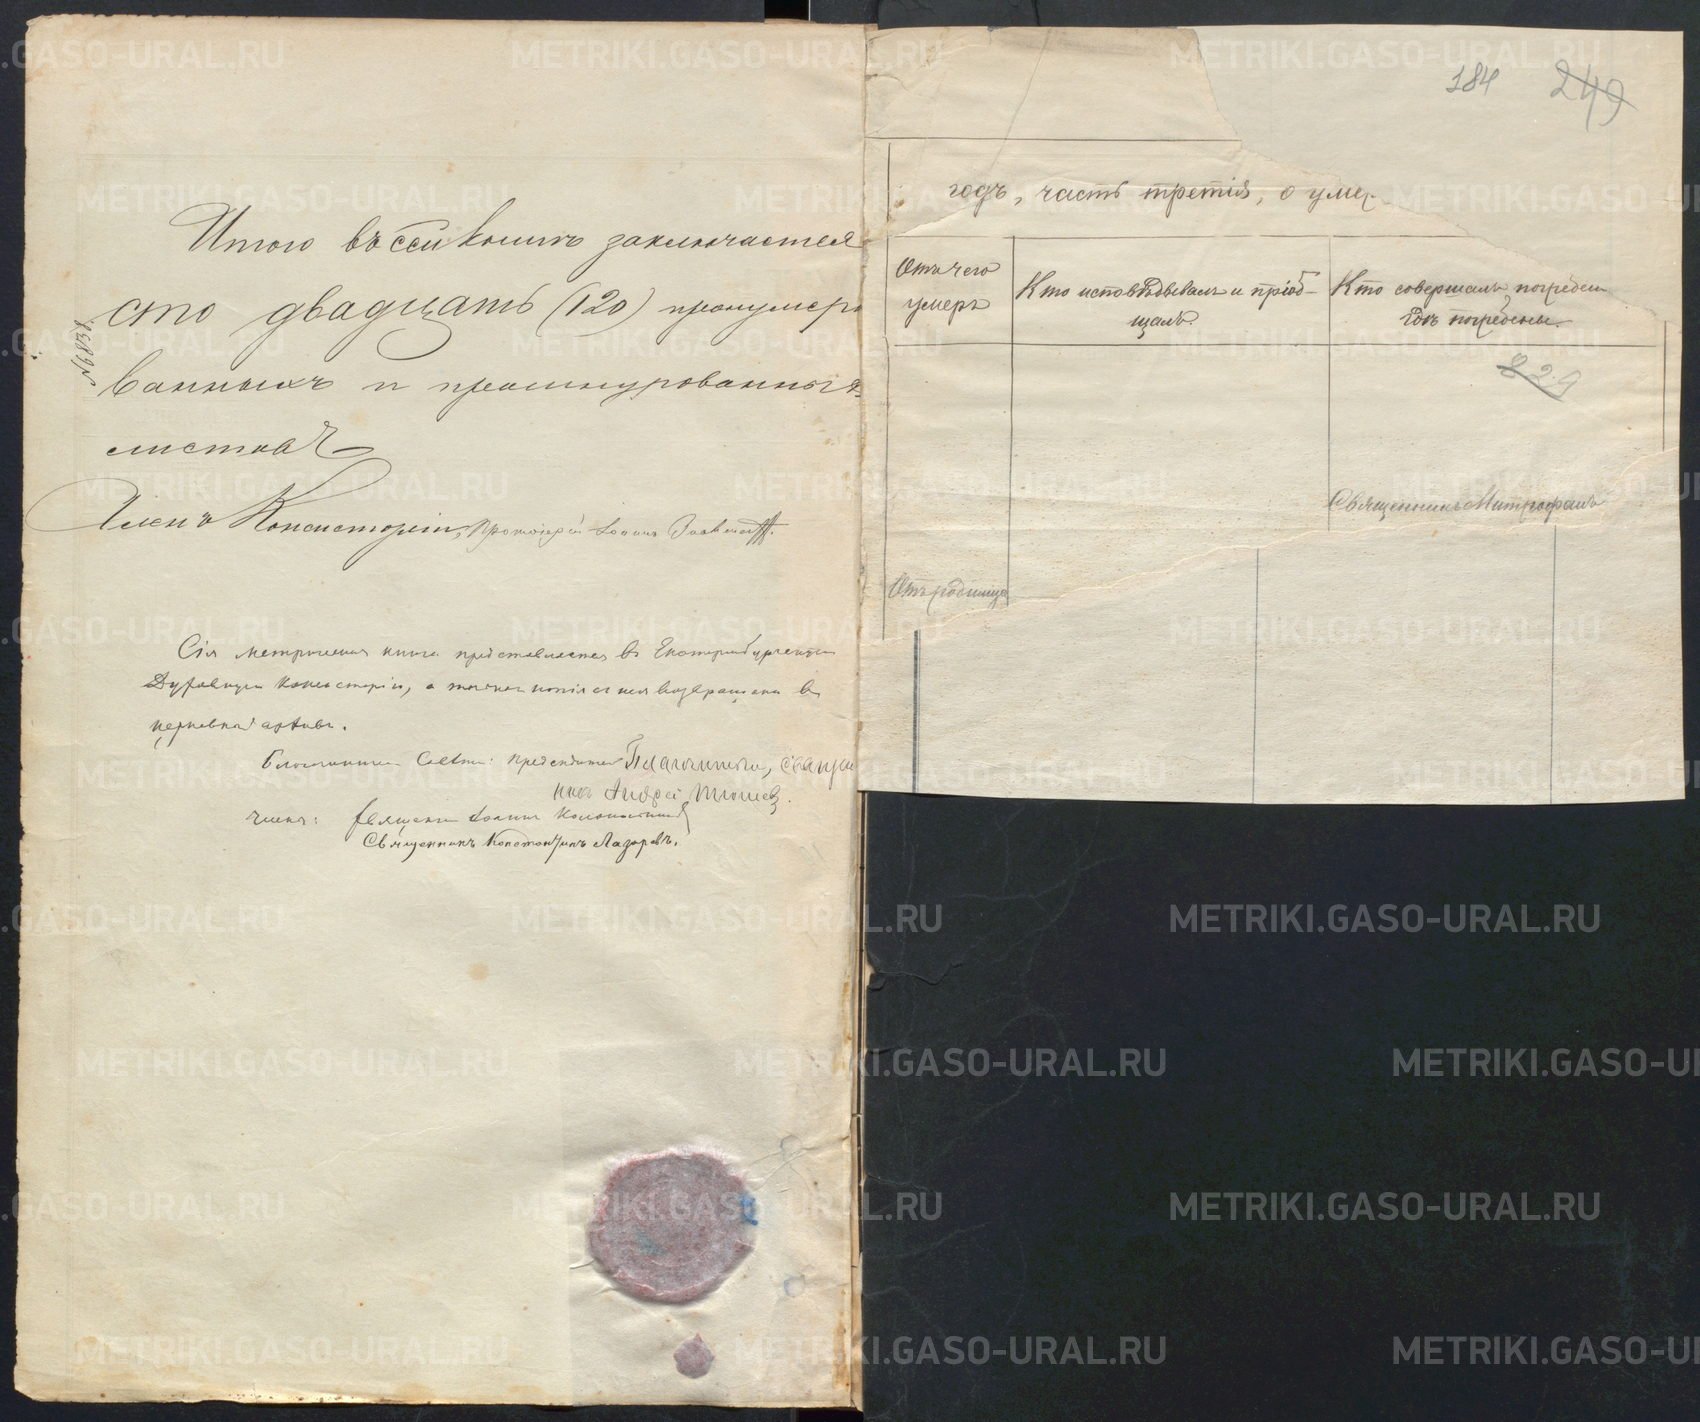 Итого въ сей книгѣ заключается
сто двадцать (120) пронумеро
ванныхъ и прошнурованныхъ
листовъ
Членъ Консисторіи, Протоіерей Іоаннъ
Сія метрическая книга представляется въ Екатеринбургскую
Духовную Консисторію, а точная копія съ нея возвращена въ
церковный архивъ.
Благочинническій Совѣтъ: Предсѣдатель Благочинный, Свяще
никъ Андрей
члены: Священникъ Іоаннъ
Священникъ Константинъ Лазаревъ.
184 249
годъ, часть третія, о умер
Отъ чего
умеръ
Кто исповѣдывалъ и пріоб-
щалъ.
Кто совершалъ погребен
гдѣ погребены.
829
Священникъ Митрофанъ
Отъ родимца
METRIKI.GASO-URAL.RU